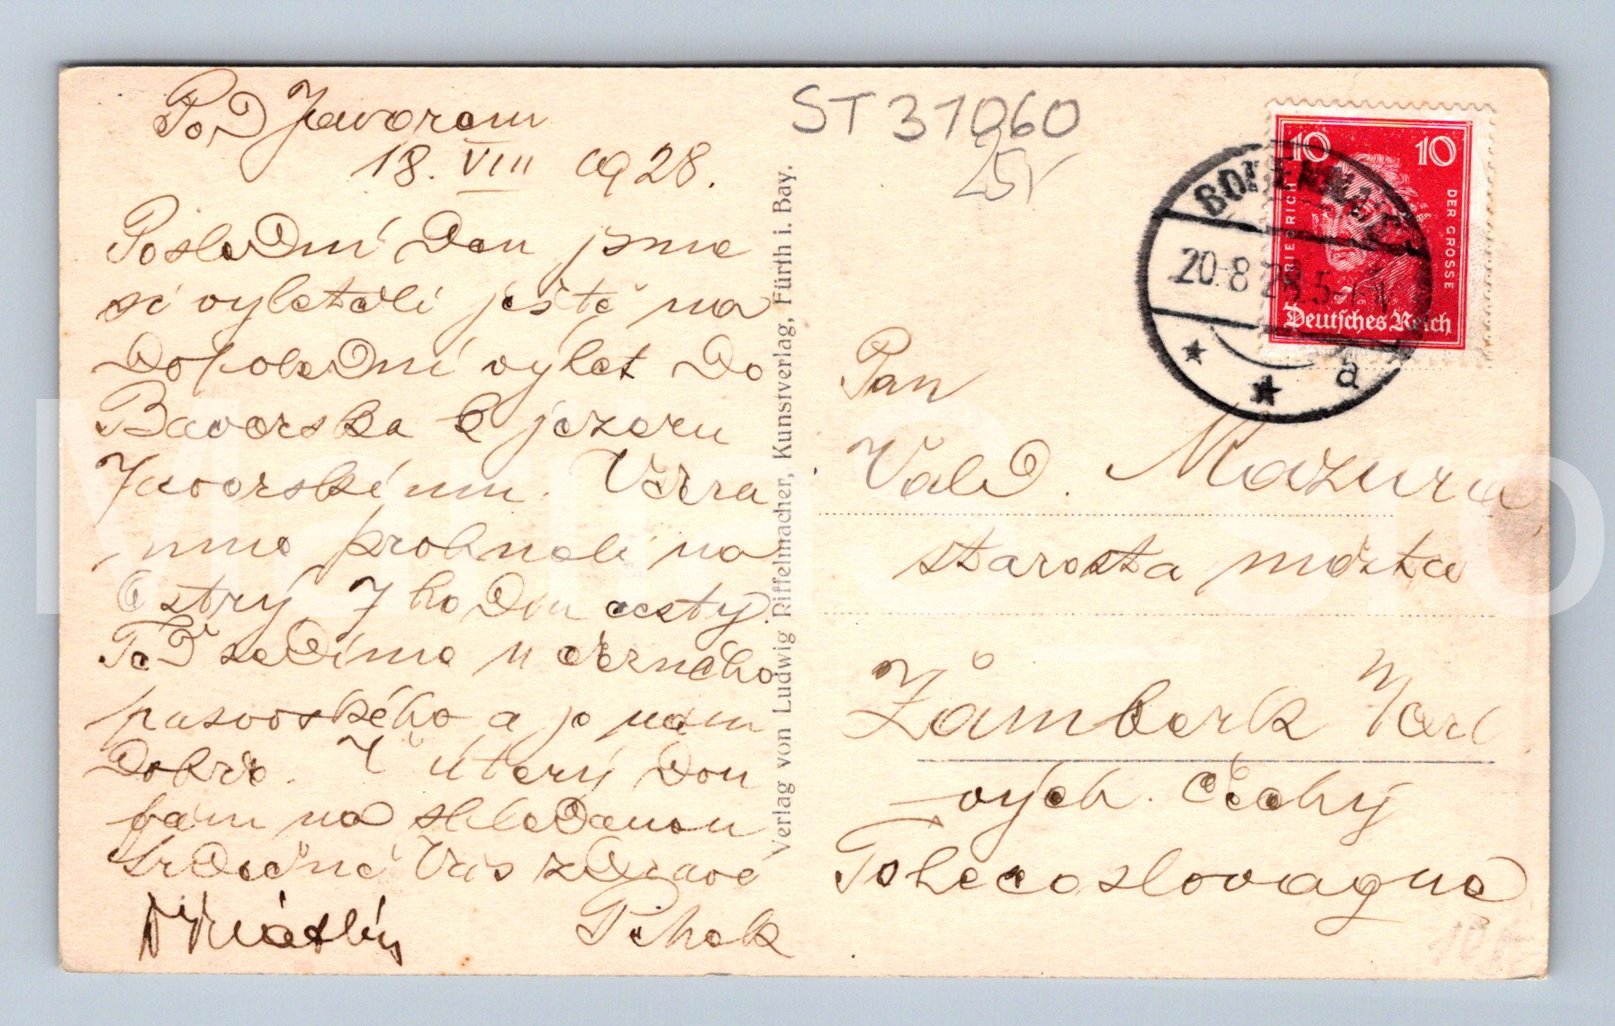 Pod Javorem
18. VIII 1928.
Poslední den jsme
si vyletěli ještě na
dopolední výlet do
Bavorska k jezeru
Javorskému. Včera
jsme proběhali na
Ostrý 7 hodin cesty.
Teď sedíme u černého
pasovského a je nám
dobře. V úterý den
vám na shledanou
Srdečně Vás zdraví
Pihek
ST 31060
25,-
Verlag von Ludwig Riffelmacher, Kunstverlag, Fürth i. Bay.
10 10
FRIEDRICH DER GROSSE
Deutsches Reich
20.8.28.5-
a
Pan
Vald. Mazura
starosta města
Žamberk
vých. Čechy
Tchecoslovaque